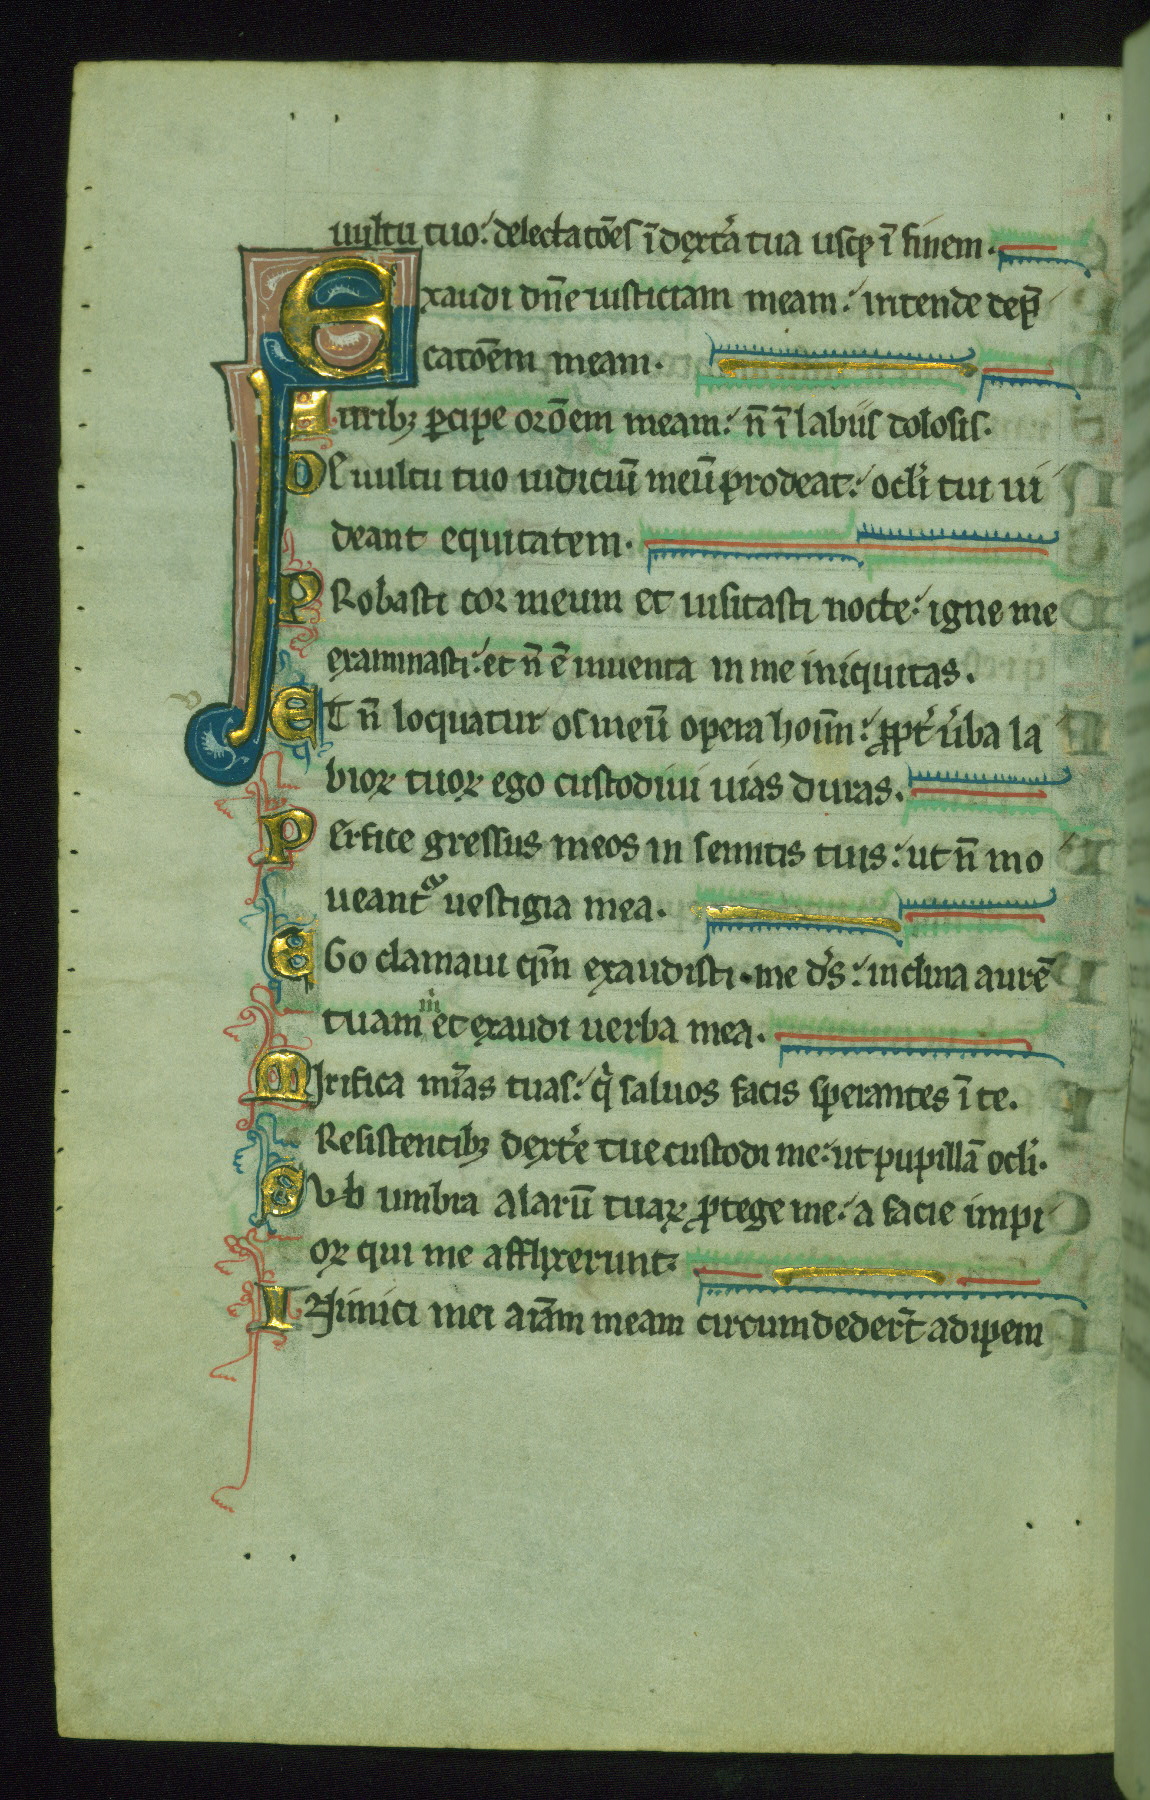 uultu tuo: delectatōes ī dext͛a tua usq̨ ī finem.
Exaudi dn̄e iusticiam meam: intende dep̄
catōem meam.
Auribꝫ ꝑcipe orōem meam: n̄ ī labiis dolosis.
De uultu tuo iudiciū meū prodeat: ocl̓i tui ui
deant equitatem.
PRobasti cor meum et uisitasti nocte: igne me
examinasti: et n̄ ē inuenta in me iniquitas.
ET n̄ loquatur os meū opera hoīm: ꝓpt͛ u͛ba la
bioꝝ tuoꝝ ego custodiui uias duras.
Perfice gressus meos in semitis tuis: ut n̄ mo
ueant᷑ uestigia mea.
EGo clamaui qm̄ exaudisti me d͛s: inclina aurē
tuam m̓ et exaudi uerba mea.
MIrifica mīas tuas: q̓ saluos facis sperantes ī te.
Resistentibꝫ dext͛e tue custodi me: ut pupillā ocl̓i.
Sub umbra alarū tuaꝝ ꝓtege me: a facie impi
oꝝ qui me afflixerunt:
INimici mei aīam meam circumdeder̄t adipem